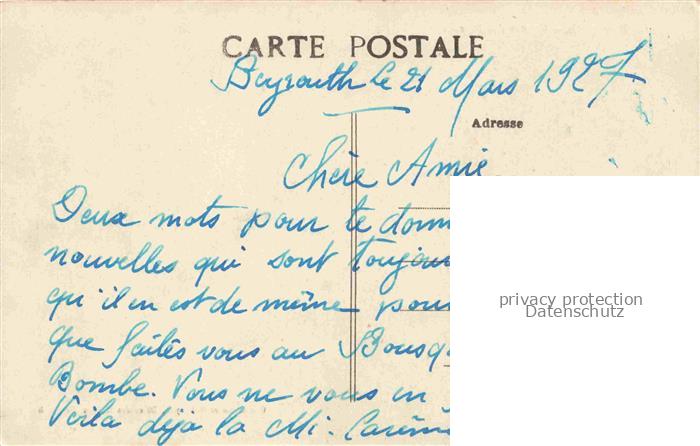 CARTE POSTALE
Beyrouth le 21 Mars 1927
Adresse
Chère Amie
Deux mots pour te donn
nouvelles qui sont toujou
qu'il en est de même pou
privacy protection
Datenschutz
que faites vous au Bousq
Bombe. Vous ne vous en
Voila deja la Mi-Carême